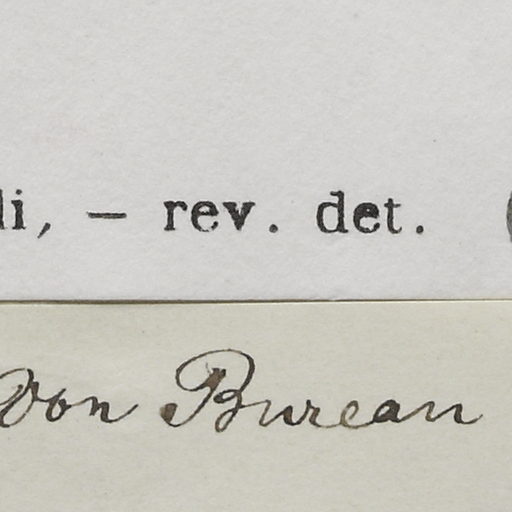 li, — rev. det.
von Bureau